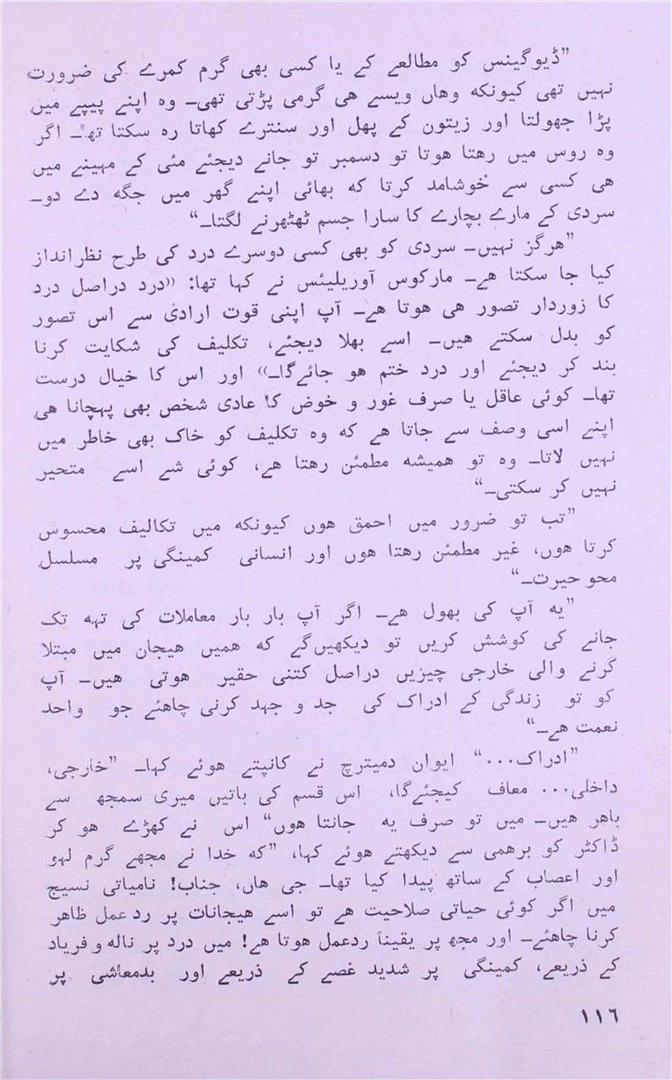 ”ڈیوگینس کو مطالعے کے یا کسی بھی گرم کمرے کی ضرورت
نہیں تھی کیونکہ وھاں ویسے ھی گرمی پڑتی تھی۔ وہ اپنے پیپے میں
پڑا جھولتا اور زیتون کے پھل اور سنترے کھاتا رہ سکتا تھا۔ اگر
وہ روس میں رھتا ھوتا تو دسمبر تو جانے دیجئے مئی کے مہینے میں
ھی کسی سے خوشامد کرتا کہ بھائی اپنے گھر میں جگہ دے دو۔
سردی کے مارے بچارے کا سارا جسم ٹھٹھرنے لگتا۔“
”ھرگز نہیں۔ سردی کو بھی کسی دوسرے درد کی طرح نظرانداز
کیا جا سکتا ھے۔ مارکوس آوریلیئس نے کہا تھا: ((درد دراصل درد
کا زوردار تصور ھی ھوتا ھے۔ آپ اپنی قوت ارادی سے اس تصور
کو بدل سکتے ھیں۔ اسے بھلا دیجئے، تکلیف کی شکایت کرنا
بند کر دیجئے اور درد ختم ھو جائےگا۔)) اور اس کا خیال درست
تھا۔ کوئی عاقل یا صرف غور و خوض کا عادی شخص بھی پہچانا ھی
اپنے اسی وصف سے جاتا ھے کہ وہ تکلیف کو خاک بھی خاطر میں
نہیں لاتا۔ وہ تو ھمیشہ مطمئن رھتا ھے، کوئی شے اسے متحیر
نہیں کر سکتی۔“
”تب تو ضرور میں احمق ھوں کیونکہ میں تکالیف محسوس
کرتا ھوں، غیر مطمئن رھتا ھوں اور انسانی کمینگی پر مسلسل
محو حیرت۔“
”یہ آپ کی بھول ھے۔ اگر آپ بار بار معاملات کی تہہ تک
جانے کی کوشش کریں تو دیکھیں گے کہ ھمیں ھیجان میں مبتلا
گرنے والی خارجی چیزیں دراصل کتنی حقیر ھوتی ھیں۔ آپ
کو تو زندگی کے ادراک کی جد و جہد کرنی چاھئے جو واحد
نعمت ھے۔“
”ادراک...“ ایوان دمیترچ نے کانپتے ھوئے کہا۔ ”خارجی،
داخلی... معاف کیجئےگا، اس قسم کی باتیں میری سمجھ سے
باھر ھیں۔ میں تو صرف یہ جانتا ھوں“ اس نے کھڑے ھو کر
ڈاکٹر کو برھمی سے دیکھتے ھوئے کہا، ”کہ خدا نے مجھے گرم لہو
اور اعصاب کے ساتھ پیدا کیا تھا۔ جی ھاں، جناب! نامیاتی نسیج
میں اگر کوئی حیاتی صلاحیت ھے تو اسے ھیجانات پر ردعمل ظاھر
کرنا چاھئے۔ اور مجھ پر یقیناً ردعمل ھوتا ھے! میں درد پر نالہ و فریاد
کے ذریعے، کمینگی پر شدید غصے کے ذریعے اور بدمعاشی پر
۱۱٦